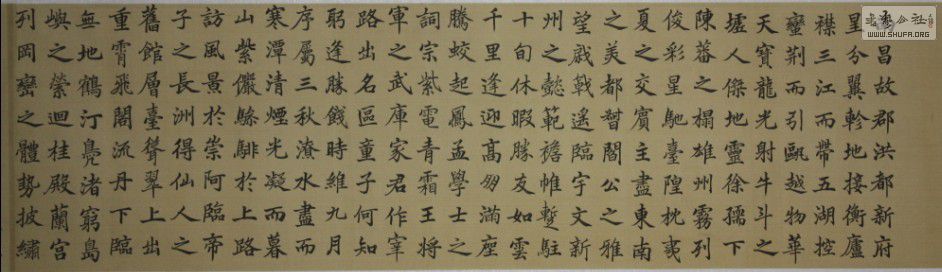 昌故郡洪都新府
星分翼軫地接衡廬
襟三江而帶五湖控
蠻荊而引甌越物華
天寶龍光射牛斗之
墟人傑地靈徐孺下
陳蕃之榻雄州霧列
俊彩星馳臺隍枕夷
夏之交賓主盡東南
之美都督閻公之雅
望棨戟遙臨宇文新
州之懿範襜帷暫駐
十旬休暇勝友如雲
千里逢迎高朋滿座
騰蛟起鳳孟學士之
詞宗紫電青霜王將
軍之武庫家君作宰
路出名區童子何知
躬逢勝餞時維九月
序屬三秋潦水盡而
寒潭清煙光凝而暮
山紫儼驂騑於上路
訪風景於崇阿臨帝
子之長洲得仙人之
舊館層臺聳翠上出
重霄飛閣流丹下臨
無地鶴汀鳧渚窮島
嶼之縈迴桂殿蘭宮
列岡巒之體勢披繡
WWW.SHUFA.ORG